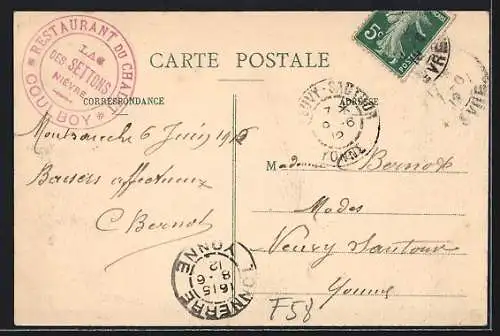 RESTAURANT DU CHALET
LAC
DES SETTONS
NIÈVRE
COULBOY
CARTE POSTALE
5c
CORRESPONDANCE
ADRESSE
NEUVY-SAUTOUR
7 *
8 -6
12
YONNE
NIÈVRE
Montsauche 6 Juin 1912
Baisers affectueux
C Bernot
Madame Bernot
Modes
Neuvy Sautour
Yonne
TONNERRE
YONNE
16 15
8 -6
12
F58